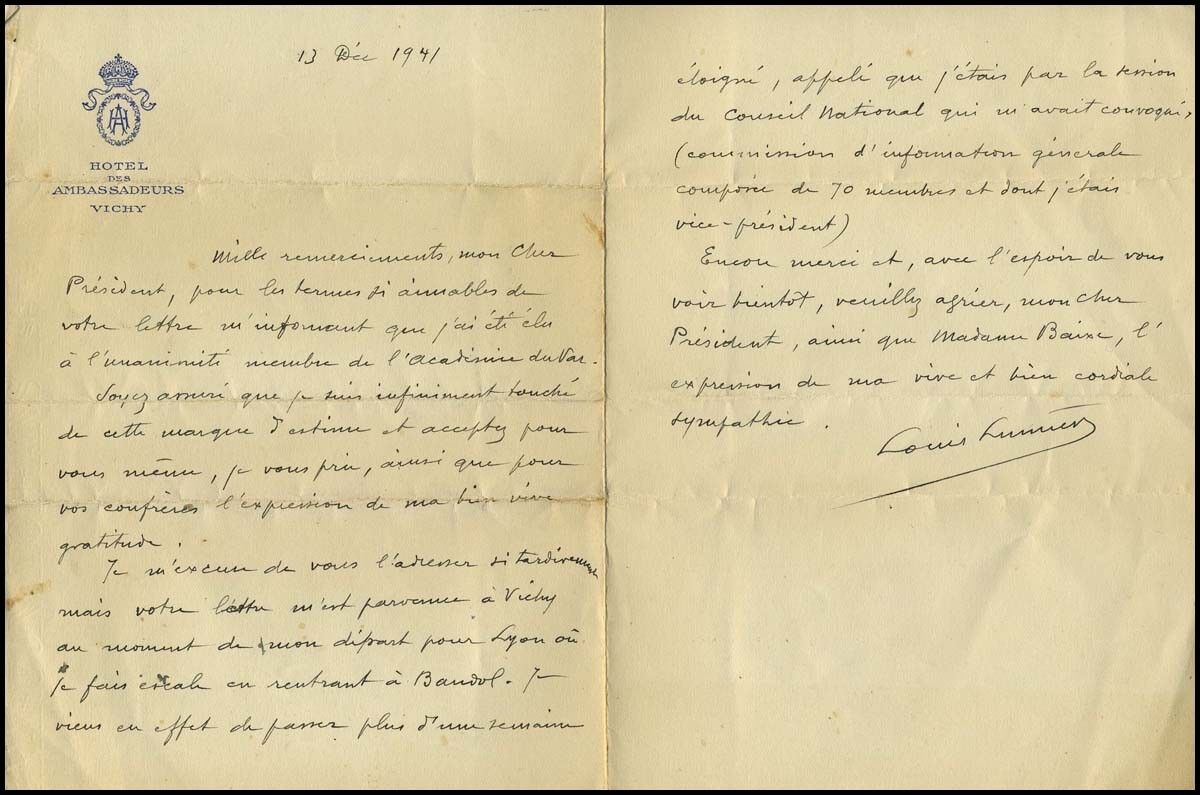 13 Déc 1941
AH
HOTEL
DES
AMBASSADEURS
VICHY
Mille remerciements, mon Cher
Président, pour les termes si aimables de
votre lettre m'informant que j'ai été élu
à l'unanimité membre de l'Académie du Var.
Soyez assuré que je suis infiniment touché
de cette marque d'estime et acceptez pour
vous même, je vous prie, ainsi que pour
vos confrères l'expression de ma bien vive
gratitude.
Je m'excuse de vous l'adresser si tardivement
mais votre lettre m'est parvenue à Vichy
au moment de mon départ pour Lyon où
je fais escale en rentrant à Bandol. Je
viens en effet de passer plus d'une semaine
éloigné, appelé que j'étais par la session
du Conseil National qui m'avait convoqué,
(commission d'information générale
composée de 70 membres et dont j'étais
vice-président)
Encore merci et, avec l'espoir de vous
voir bientôt, veuillez agréer, mon Cher
Président, ainsi que Madame Baixe, l'
expression de ma vive et bien cordiale
sympathie.
Louis Lumière